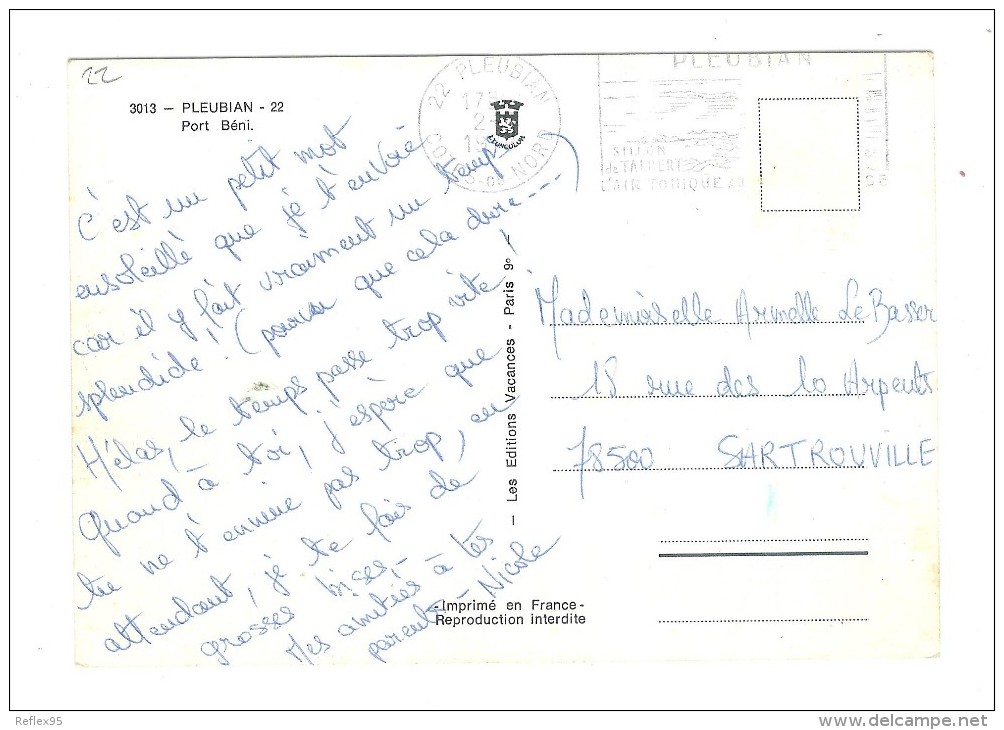 22
3013 — PLEUBIAN - 22
Port Béni.
C'est un petit mot
ensoleillé que je t'envoie
car il y fait vraiment un temps
splendide (pourvu que cela dure---)
Hélas, le temps passe trop vite !
Quand à toi, j'espère que
tu ne t'ennuie pas trop, en
attendant, je te fais de
grosses bises,-
Mes amitiés à tes
parents - Nicole
— Les Editions Vacances - Paris 9e —
-Imprimé en France-
Reproduction interdite
22 PLEUBIAN
COTES-DU-NORD
PLEUBIAN
SILLON
de TALBERT
L'AIR TONIQUE
Mademoiselle Armelle Le Basser
18 rue des 10 Arpents
78500 SARTROUVILLE
Reflex95
delcampe.net